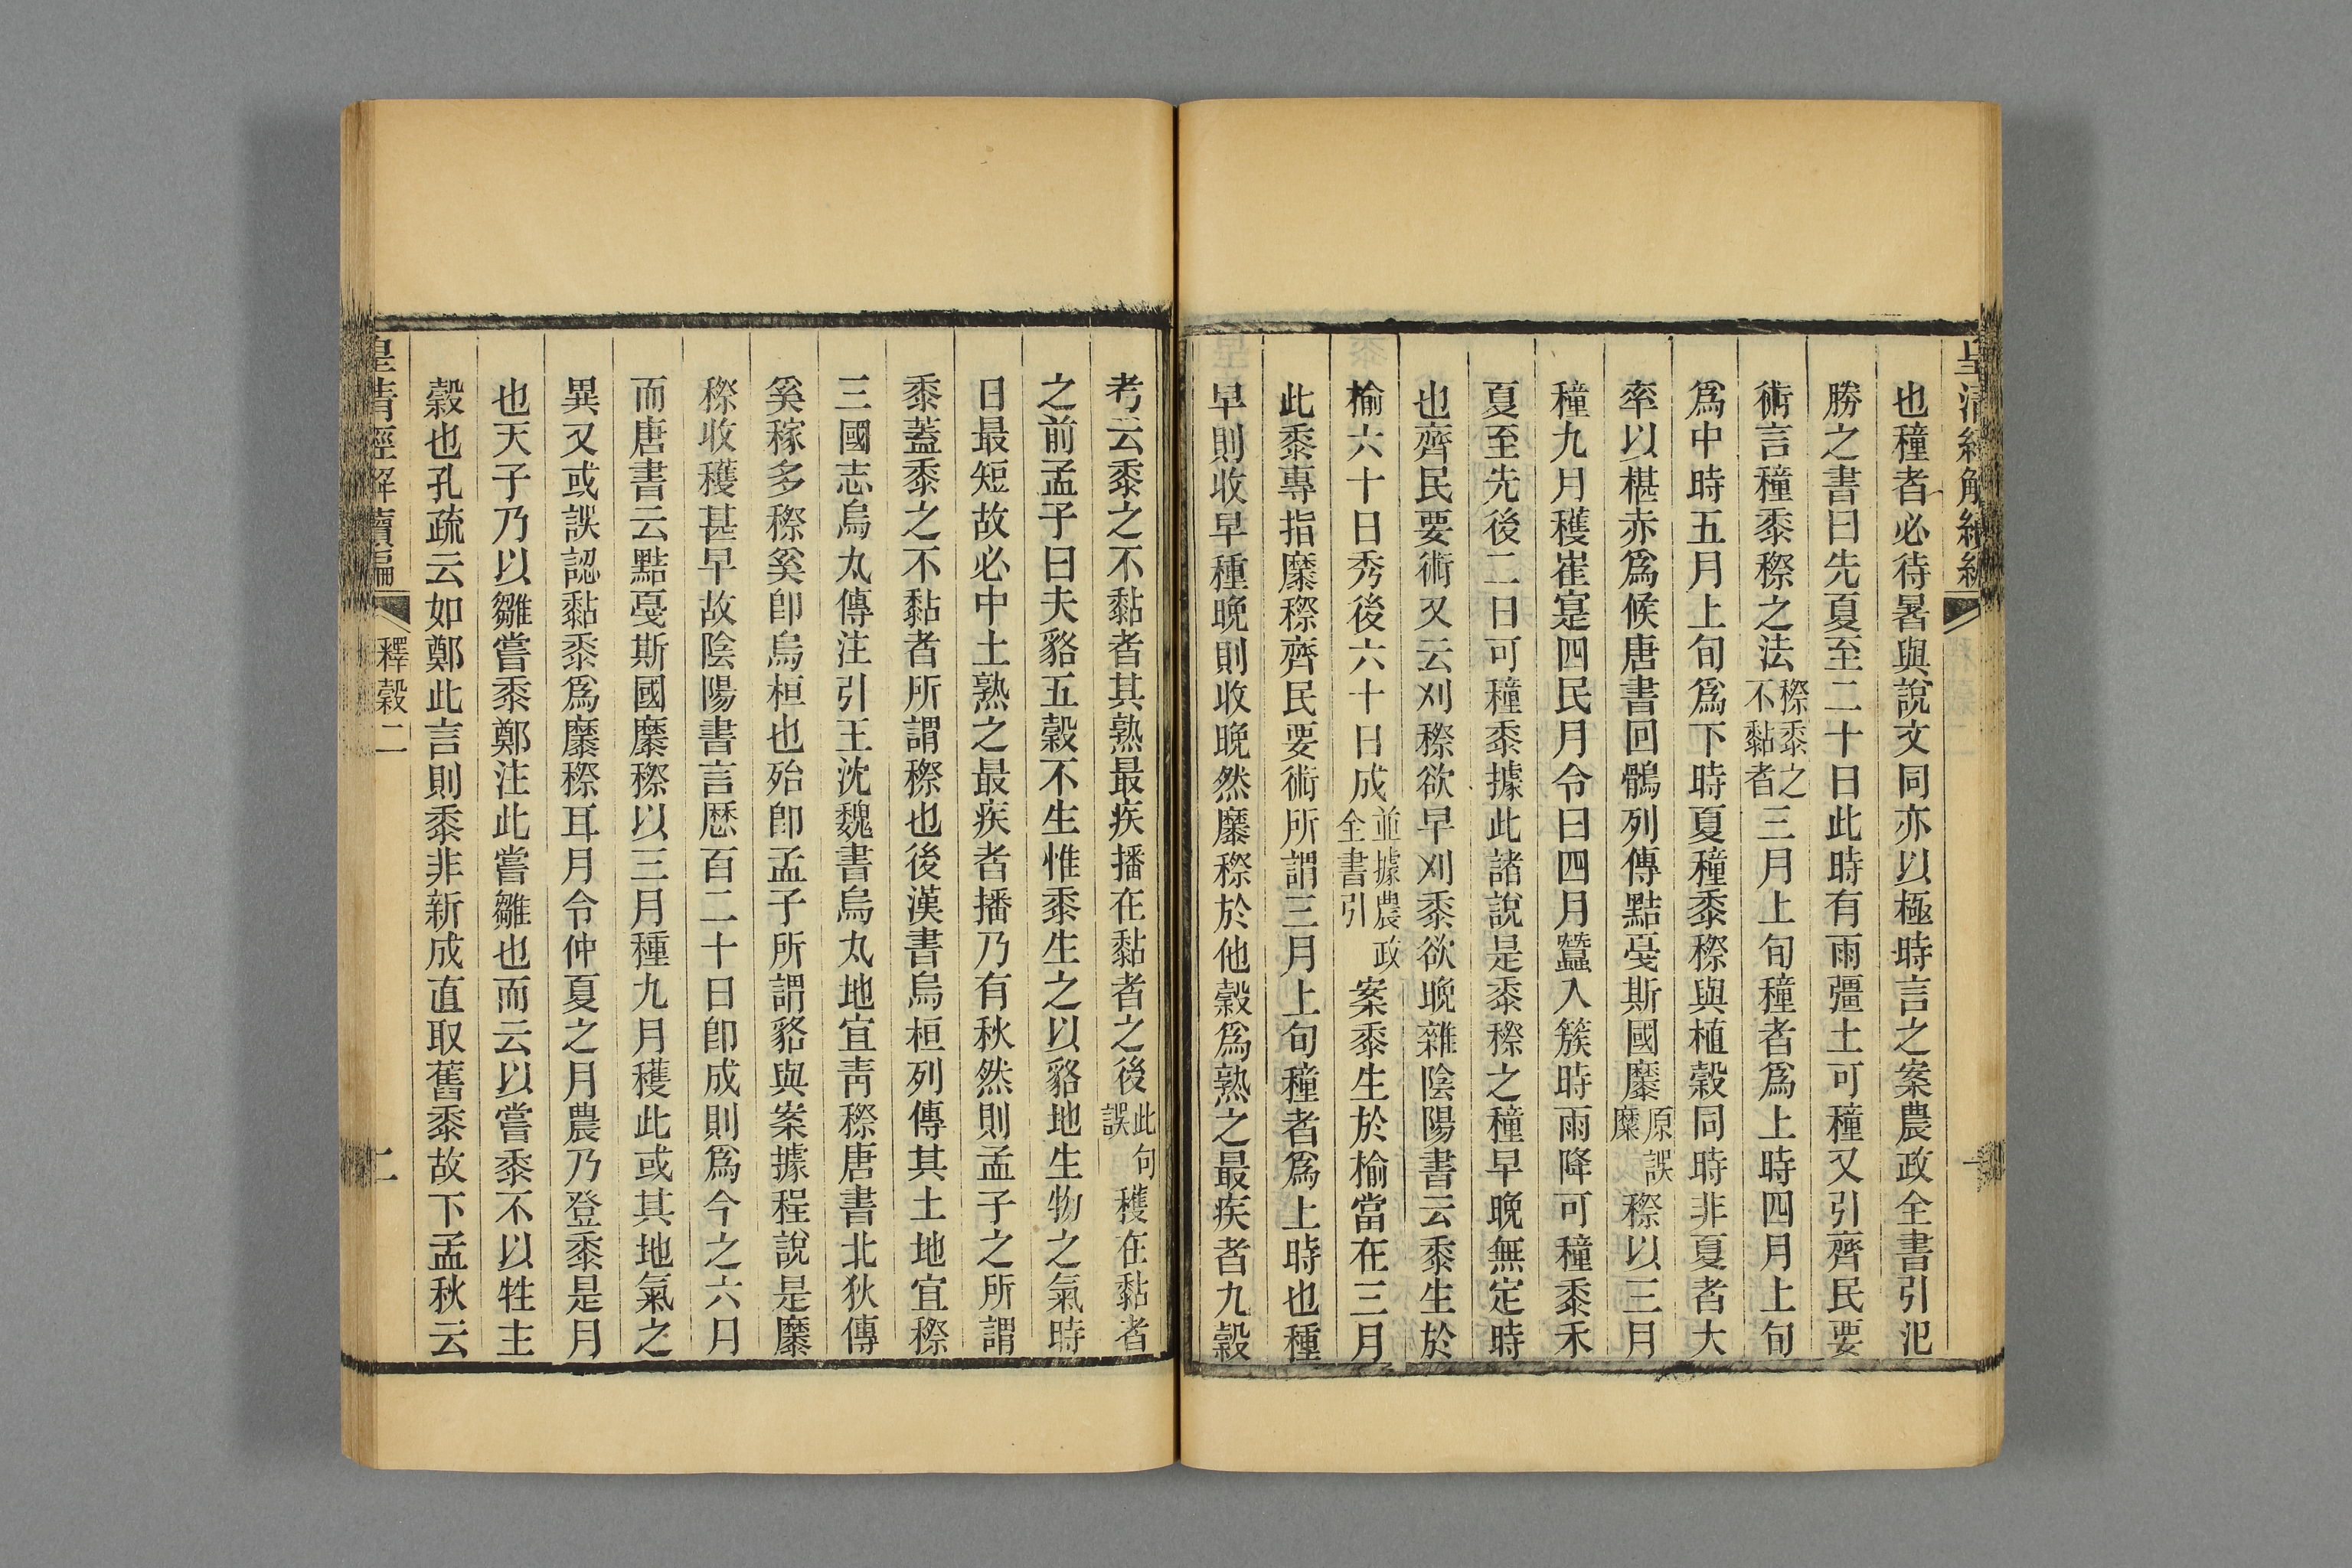 皇清經解續編
也穜者必待暑與說文同亦以極時言之案農政全書引氾
勝之書曰先夏至二十日此時有雨彊土可穜又引齊民要
術言穜黍穄之法穄黍之不黏者三月上旬穜者爲上時四月上旬
爲中時五月上旬爲下時夏穜黍穄與植穀同時非夏者大
率以椹赤爲候唐書回鶻列傳黠戛斯國穈原誤糜穄以三月
穜九月穫崔寔四民月令曰四月蠶入簇時雨降可穜黍禾
夏至先後二日可穜黍據此諸說是黍穄之穜早晚無定時
也齊民要術又云刈穄欲早刈黍欲晚雜陰陽書云黍生於
榆六十日秀後六十日成並據農政全書引案黍生於榆當在三月
此黍專指穈穄齊民要術所謂三月上旬穜者爲上時也種
早則收早種晚則收晚然穈穄於他穀爲熟之最疾者九穀
考云黍之不黏者其熟最疾播在黏者之後此句誤穫在黏者
之前孟子曰夫貉五穀不生惟黍生之以貉地生物之氣時
日最短故必中土熟之最疾者播乃有秋然則孟子之所謂
黍蓋黍之不黏者所謂穄也後漢書烏桓列傳其土地宜穄
三國志烏丸傳注引王沈魏書烏丸地宜靑穄唐書北狄傳
奚稼多穄奚卽烏桓也殆卽孟子所謂貉與案據程說是穈
穄收穫甚早故陰陽書言厯百二十日卽成則爲今之六月
而唐書云黠戛斯國穈穄以三月種九月穫此或其地氣之
異又或誤認黏黍爲穈穄耳月令仲夏之月農乃登黍是月
也天子乃以雛嘗黍鄭注此嘗雛也而云以嘗黍不以牲主
穀也孔疏云如鄭此言則黍非新成直取舊黍故下孟秋云
皇清經解續編 釋穀二 二